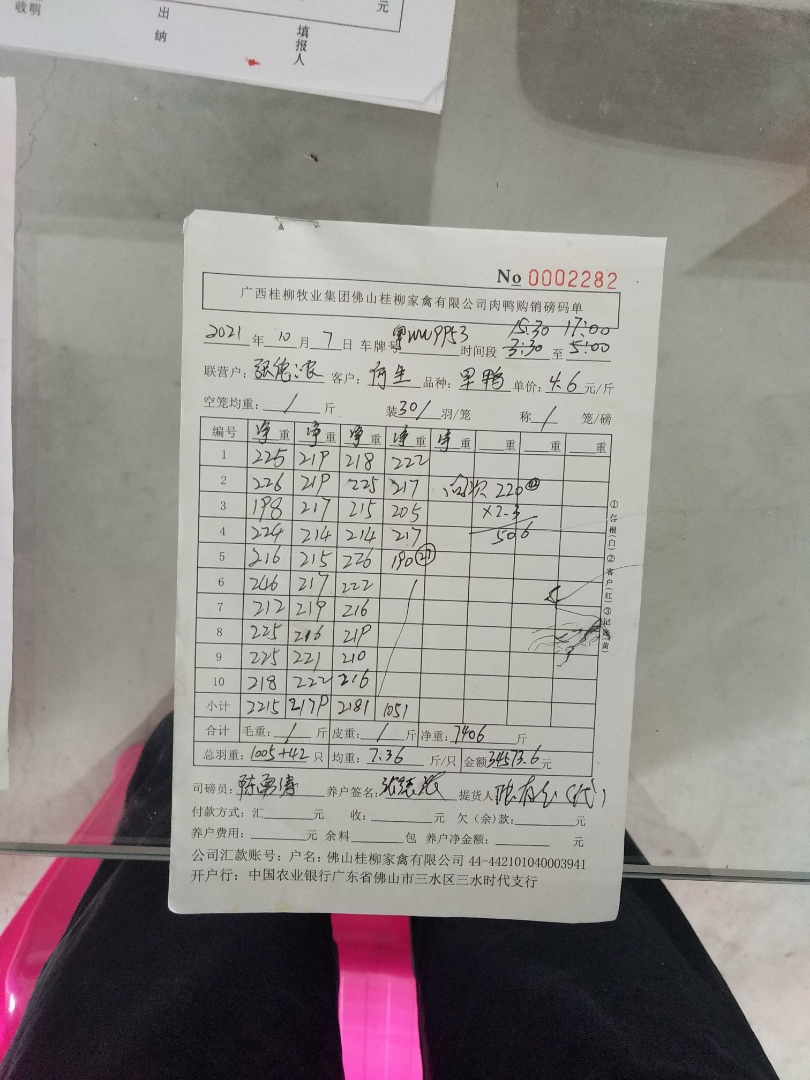 元
收明
出
纳
填
报
人
No 0002282
广西桂柳牧业集团佛山桂柳家禽有限公司肉鸭购销磅码单
15:30 17:00
2021年10月7日 车牌号 9953 时间段 3:30 至 5:00
联营户： 客户：何生 品种：黑鸭 单价：4.6 元/斤
空笼均重：/ 斤 装 30/ 羽/笼 称 / 笼/磅
编号 净重 净重 净重 净重 净重 重 重 重
1 225 219 218 222
2 226 219 225 217 220
3 198 217 215 205 ×2.3
4 224 214 214 217 506
5 216 215 226 190 27
6 246 217 222
7 212 219 216
8 225 216 219
9 225 221 210
10 218 222 216
小计 2215 2179 2181 1051
合计 毛重：/ 斤 皮重：/ 斤 净重：7406 斤
总羽重：1005+42 只 均重：7.36 斤/只 金额 34573.6 元
司磅员： 养户签名： 提货人 (代)
付款方式：汇 元 收： 元 欠(余)款： 元
养户费用： 元 余料 包 养户净金额： 元
公司汇款账号：户名：佛山桂柳家禽有限公司 44-442101040003941
开户行：中国农业银行广东省佛山市三水区三水时代支行
①存根(白)②客户(红)③记账(黄)